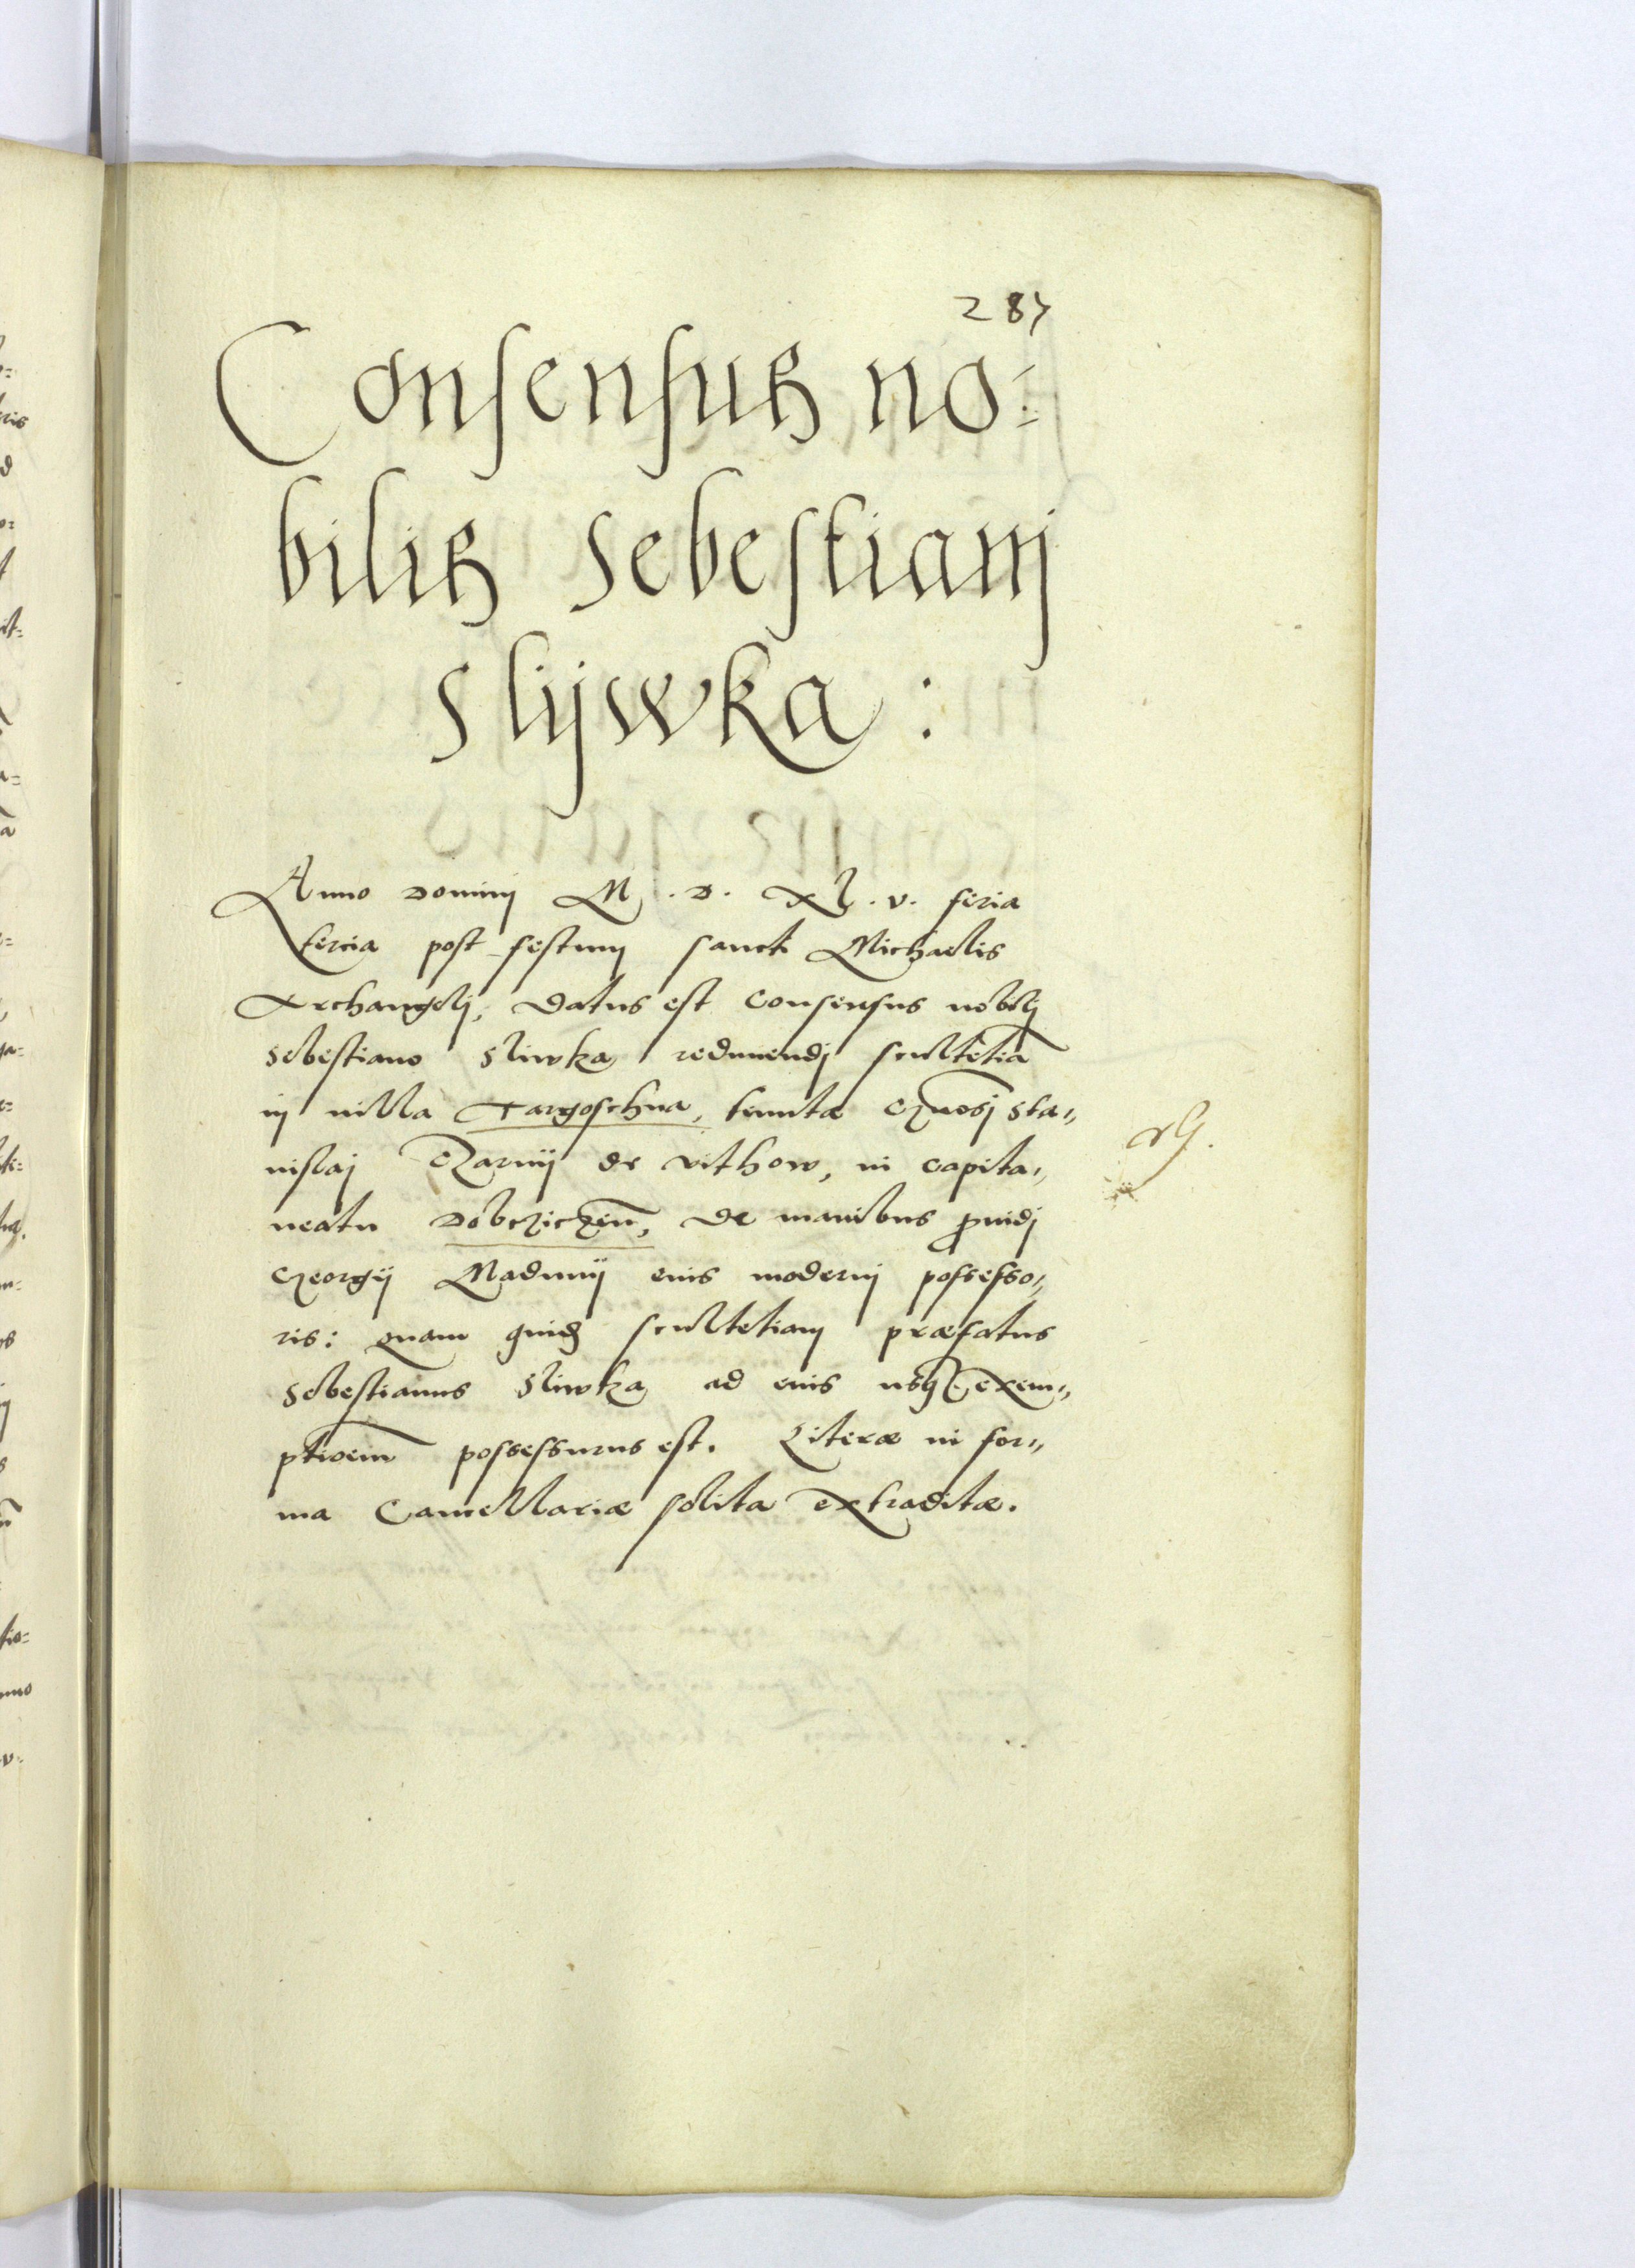 287
Consensus no=
bilis Sebestianj
Slijwka :
Anno Dominj M . D . XL . v . feria
tercia post festum sancti Michaelis
Archangelj, datus est consensus nobilj
Sebestiano Sliwka redimendj scultetiā
in villa Targoschna, tenutæ Gnosj Sta=
nislaj de vithow, in capita=
neatu Dobczicēn, de manibus ꝓuidj
Georgij Madunij eius modernj possesso=
ris: quam quidē scultetiam præfatus
Sebestianus Sliwka ad eius usqꝫ exem=
ptioem̄ possessurus est. Literæ in for=
ma Cancellariæ solita extraditæ.